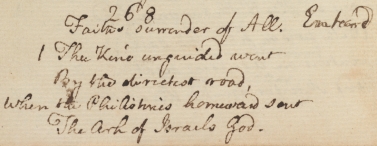 268
Faith's surrender of All. Enterd
1 The Kine unguided went
By the directest road,
When the Philistines homeward sent
The Ark of Israels God.